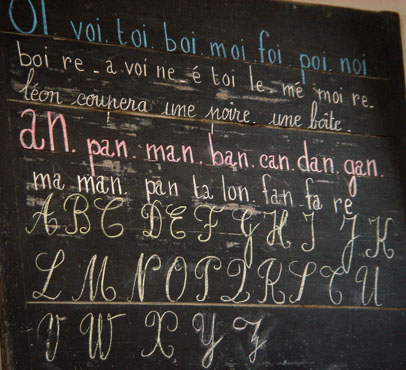 OI voi. toi. boi. moi. foi. poi. noi
boi re _ a voi ne _ é toi le _ mé moi re_
léon coupera une poire. une boîte.
an. pan. man. ban. can. dan. gan.
ma man. pan ta lon. fan fa re
A B C D E F G H I J K
L M N O P Q R S T U
V W X Y Z